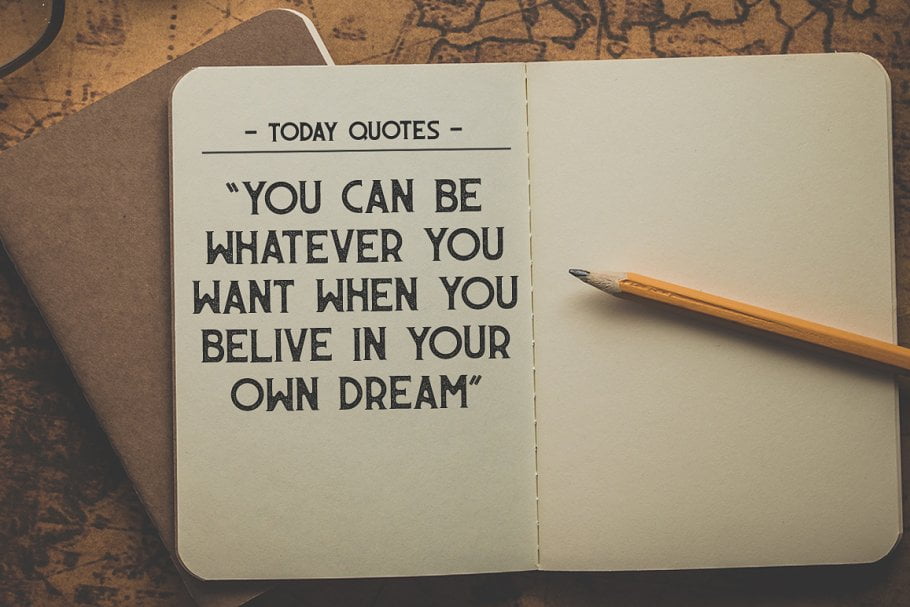 - TODAY QUOTES -
“YOU CAN BE
WHATEVER YOU
WANT WHEN YOU
BELIVE IN YOUR
OWN DREAM”